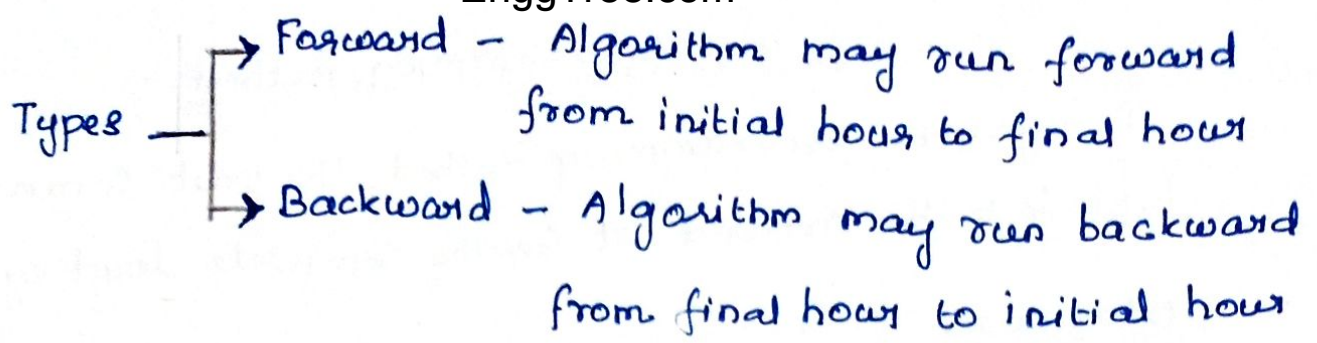 Forward - Algorithm may run forward
from initial hour to final hour
Types
Backward - Algorithm may run backward
from final hour to initial hour